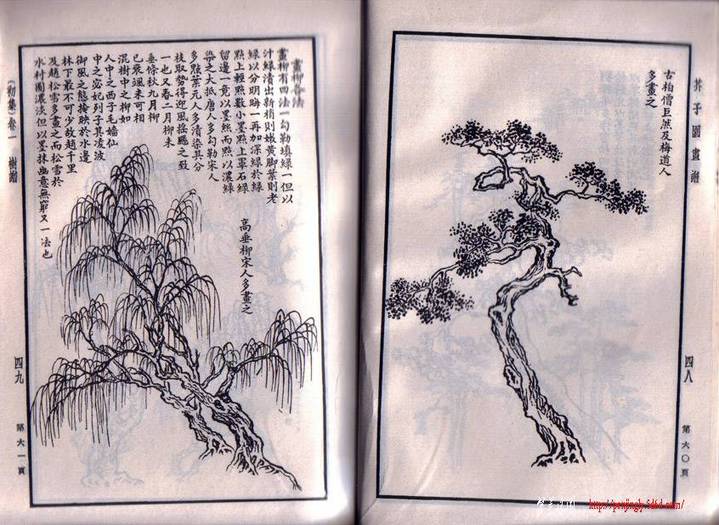 芥子園畫譜
四八
第六〇頁
古柏僧巨然及梅道人
多畫之
畫柳各法
畫柳有四法一勾勒填綠一但以
汁綠漬出新梢則嫩黃脚葉則老
綠以分明晦一再加深綠於綠
點上輕點數小墨點上單石綠
留邊一竟以墨煞而點以濃綠
染之大抵唐人多勾勒宋人
多點葉元人多漬染其分
枝取勢得迎風搖颺之致
一也又春二月柳未
垂條秋九月柳
已衰颯未可相
混樹中之柳如
人中之西子毛嬙仙
中之宓妃列子具凌波
御風之態掩映於水邊
林下最不可少故趙千里
及趙松雪多畫之而松雪於
水村圖濃淡但以墨抹幽意無窮又一法也
高垂柳宋人多畫之
(初集)卷一
樹譜
四九
第六一頁